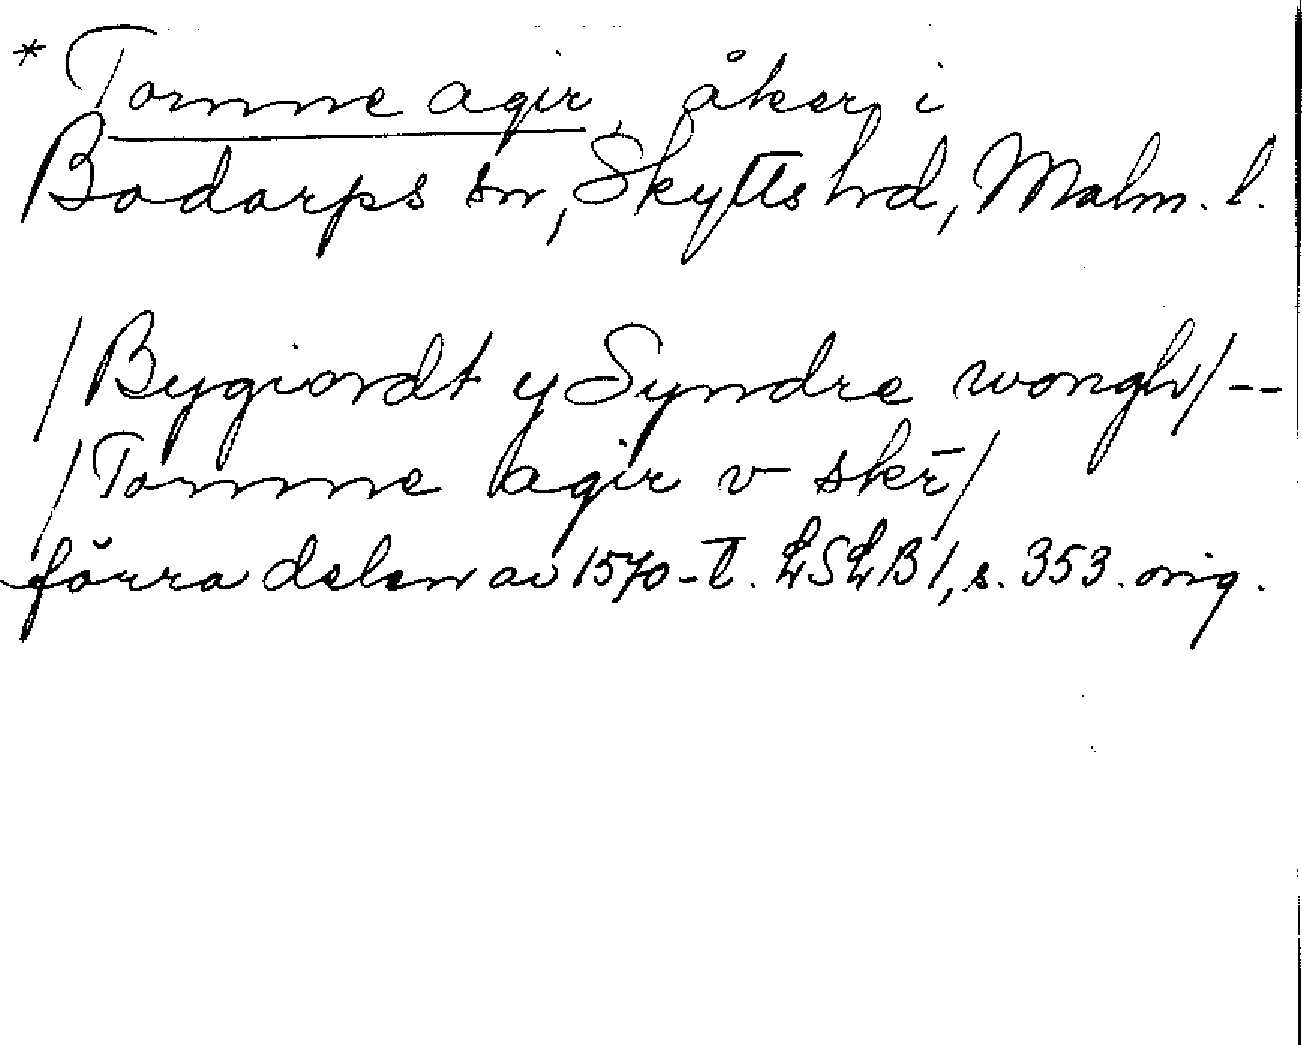 * Tomme agir, åker i
Bodarps sn, Skytts hd, Malm. l.
/Bygiordt y Syndre wongh/--
/Tomme agir v skr̄/
förra delen av 1570-t. LSLB 1, s. 353. orig.